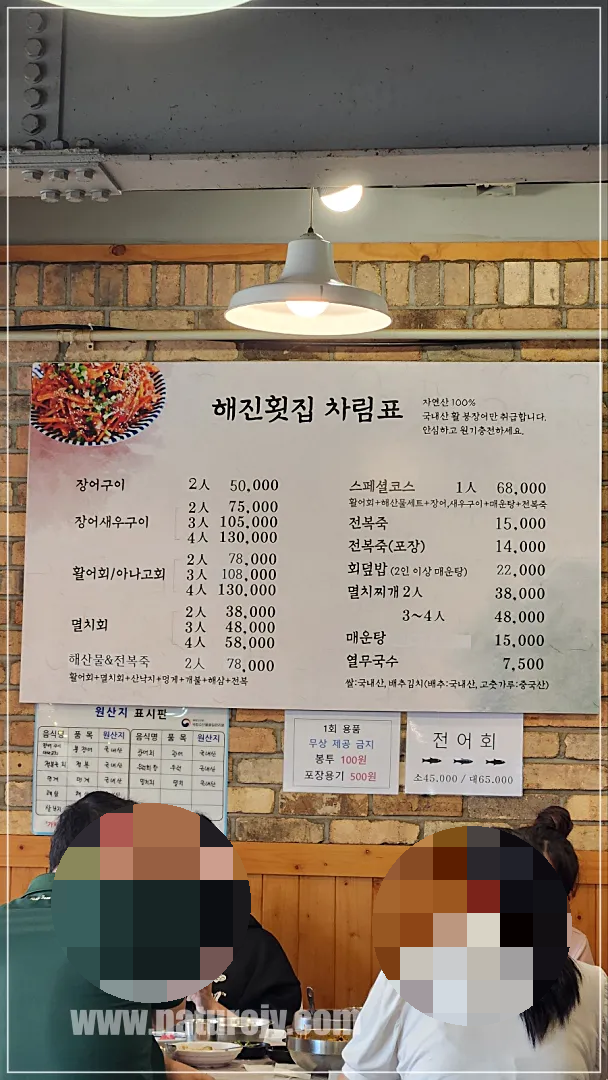 해진횟집 차림표
자연산 100%
국내산 활 붕장어만 취급합니다.
안심하고 원기충전하세요.
장어구이 2人 50,000
장어새우구이
2人 75,000
3人 105,000
4人 130,000
활어회/아나고회
2人 78,000
3人 108,000
4人 130,000
멸치회
2人 38,000
3人 48,000
4人 58,000
해산물&전복죽 2人 78,000
활어회+멸치회+산낙지+멍게+개불+해삼+전복
스페셜코스 1人 68,000
활어회+해산물세트+장어,새우구이+매운탕+전복죽
전복죽 15,000
전복죽(포장) 14,000
회덮밥 (2인 이상 매운탕) 22,000
멸치찌개 2人 38,000
3~4人 48,000
매운탕 15,000
열무국수 7,500
쌀:국내산, 배추김치(배추:국내산, 고춧가루:중국산)
원산지 표시판
음식명 품 목 원산지 음식명 품 목 원산지
붕장어 국내산 광어 국내산
전복 국내산 우럭 국내산
멍게 국내산 멸치 국내산
1회 용품
무상 제공 금지
봉투 100원
포장용기 500원
전 어 회
소45.000 / 대65.000
www.natureiv.com